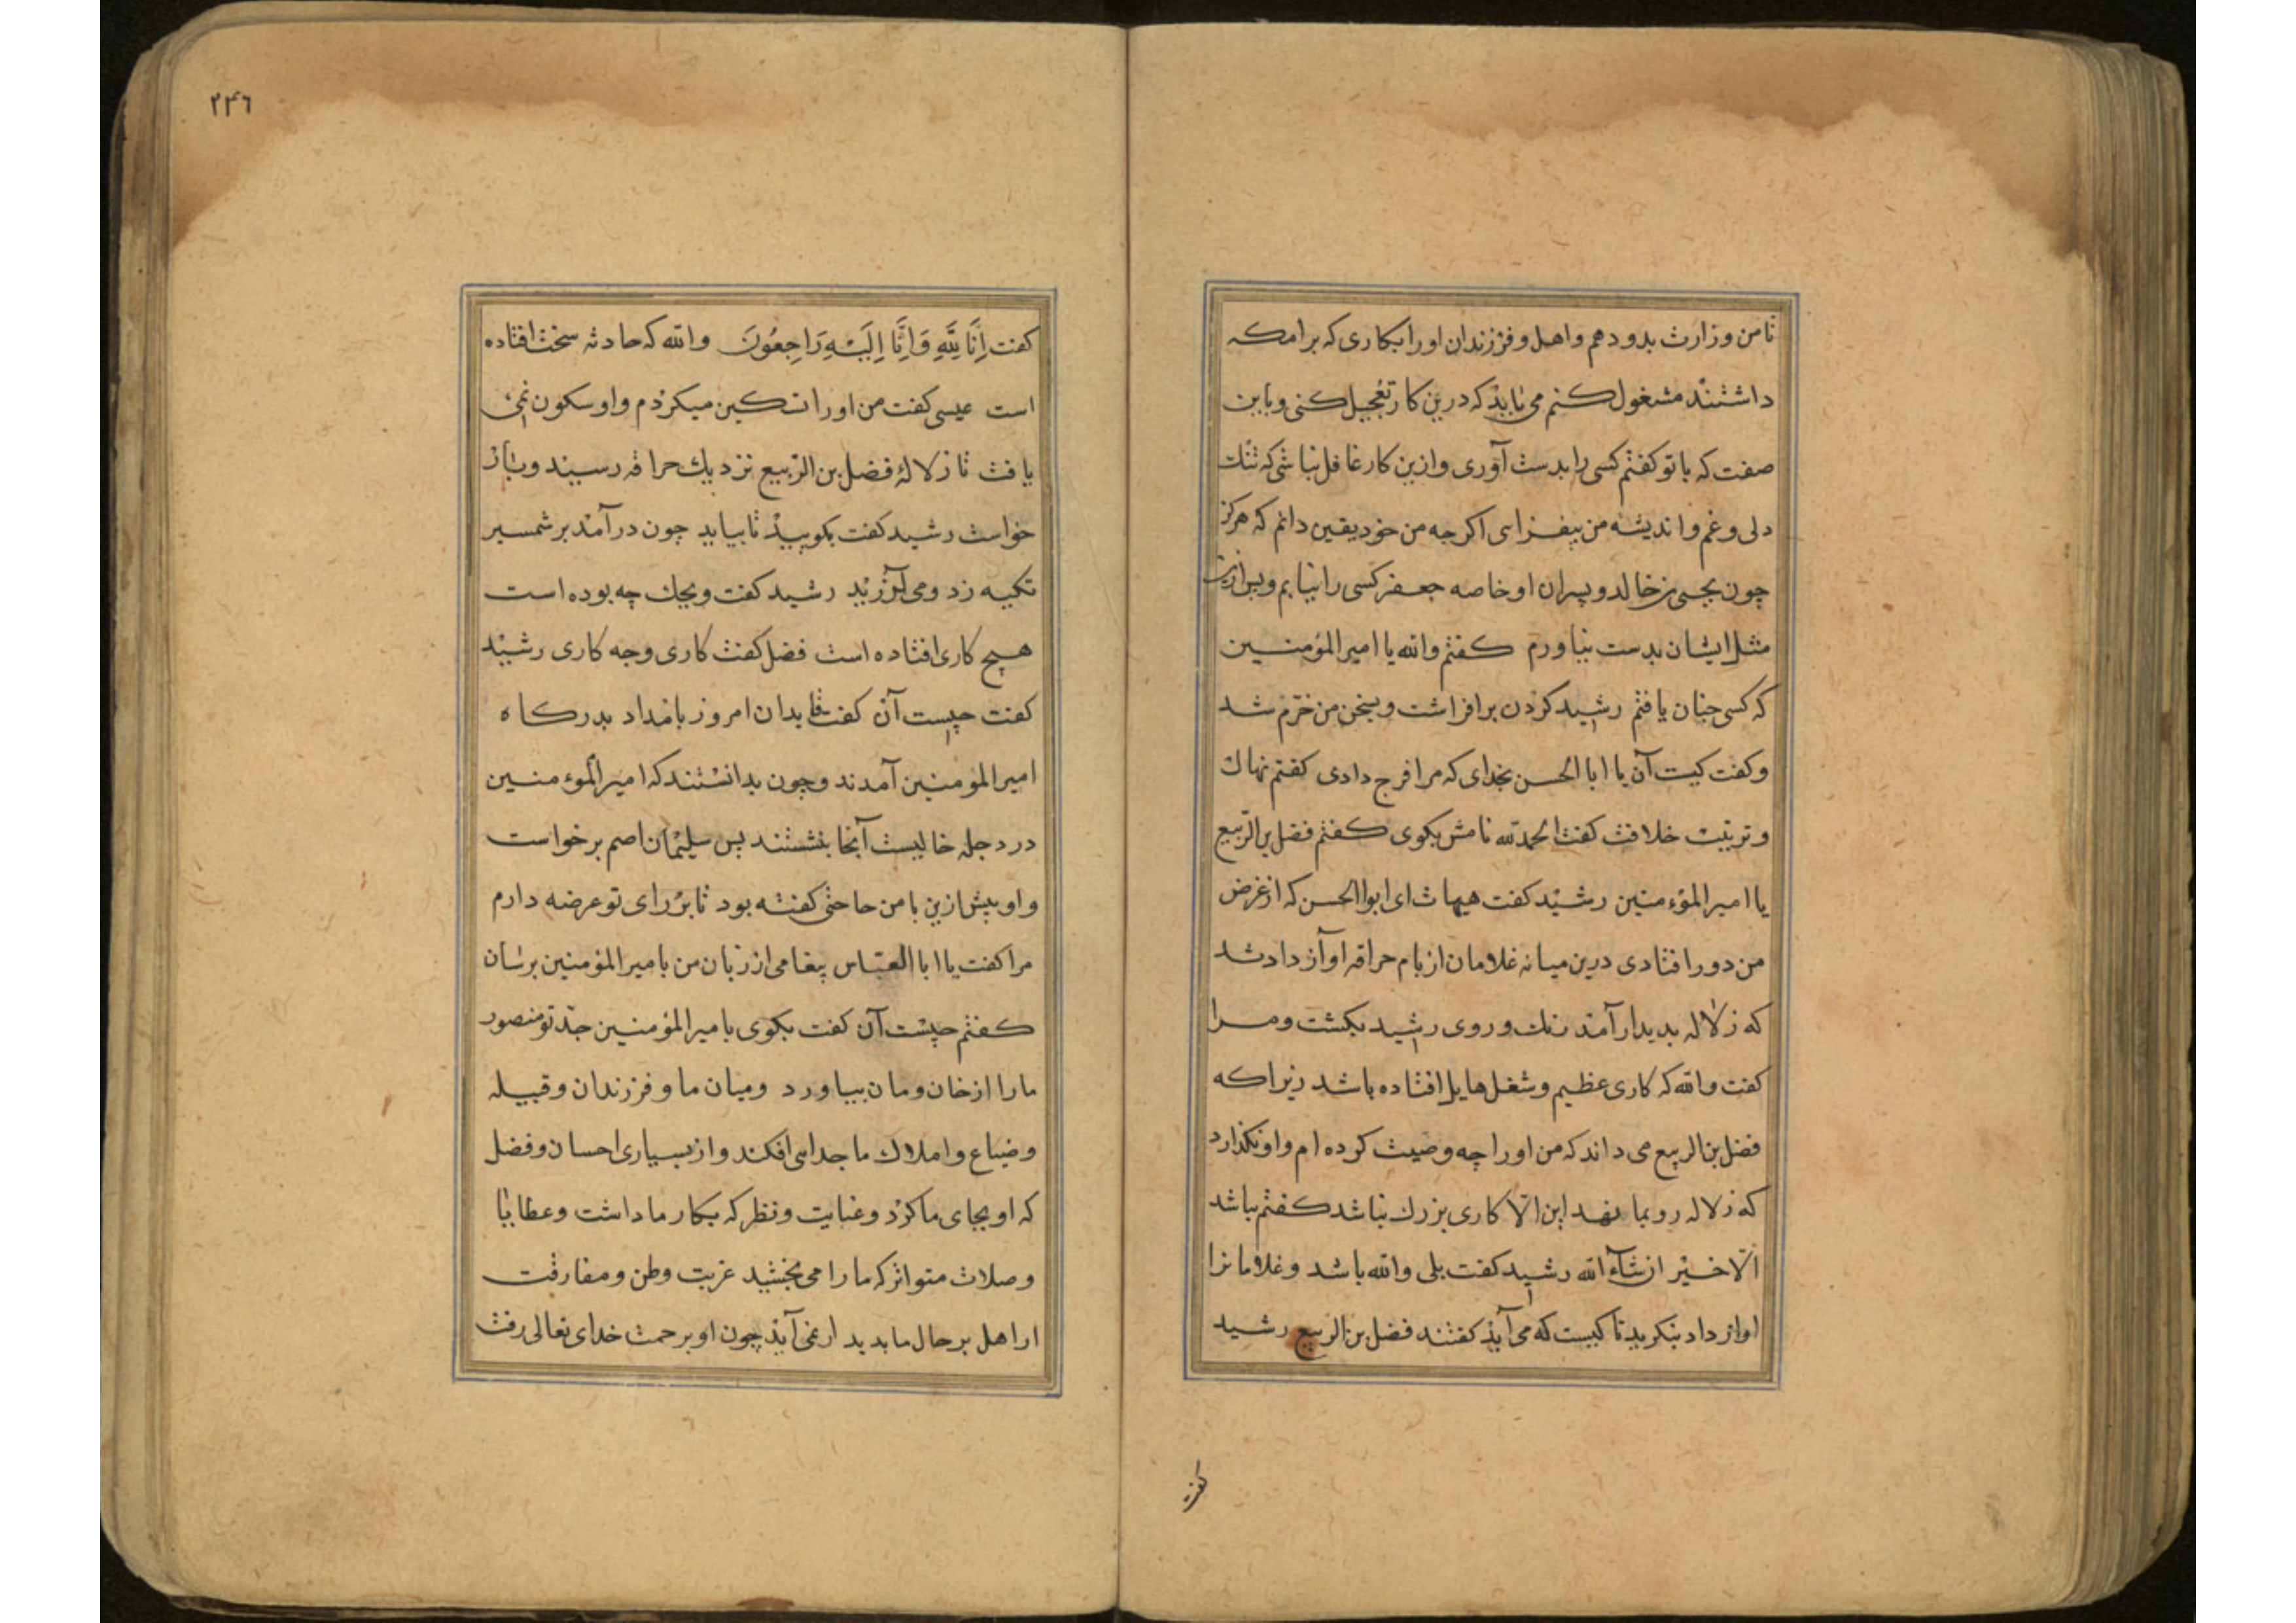 تا من وزارت بدو دهم و اهل و فرزندان او را بکاری که برامکه
داشتند مشغول کنم می باید که درین کار تعجیل کنی و باین
صفت که با تو کفتم کسی را بدست آوری و ازین کار غافل نباشی که تنک
دلی و غم و اندیشه من بیفزاى اکرجه من خود یقین دانم که هرکز
چون یحیی بن خالد و پسران او خاصه جعفر کسی را نیابم و پس ازین
مثل ایشان بدست نیاورم کفتم والله یا امیرالمؤمنین
که کسی جنان یافتم رشید کردن برافراشت و بسخن من خرّم شد
و کفت کیست آن یا ابا الحسن بخدای که مرا فرج دادی کفتم نهاك
و تربیت خلافت کفت الحمدلله نامش بکوی کفتم فضل بن الربیع
یا امیر المؤمنین رشید کفت هیهات ای ابوالحسن که از غرض
من دور افتادی درین میانه غلامان از بام حراقه اواز دادند
که زلاله بدیدار آمد رنك و روی رشید بکشت و مرا
کفت والله که کاری عظیم و شغل هایل افتاده باشد زیرا که
فضل بن الربیع می داند که من او را چه وصیت کرده ام و او نکذارد
که زلاله رو بما نهد این الّا کاری بزرك نباشد کفتم نباشد
الّا خیر ان شآء الله رشید کفت بلی والله باشد و غلامانرا
اواز داد بنکرید تا کیست که می آید کفتند فضل بن الربیع رشید
کفت
۲۴٦
کفت اِنَّا لِلَّهِ وَاِنَّا اِلَیْهِ رَاجِعُونَ والله که حادثه سخت افتاده
است عیسی کفت من او را تسکین میکردم و او سکون نمی
یافت تا زلالۀ فضل بن الربیع نزدیك حراقه رسید و باز
خواست رشید کفت بکویید تا بیاید چون درآمد بر شمسیر
تکیه زد و می لرزید رشید کفت ویحك چه بوده است
هیچ کاری افتاده است فضل کفت کاری وجه کاری رشید
کفت چیست آن کفت قایدان امروز بامداد بدرکاه
امیر المؤمنین آمدند و چون بدانستند که امیر المؤمنین
در دجله خالیست آنجا بنشستند پس سلیمان اصم برخواست
و او پیش ازین با من حاجتی کفته بود تا بر رای تو عرضه دارم
مرا کفت یا ابا العبّاس پیغامی از زبان من با میر المؤمنین برسان
کفتم چیست آن کفت بکوی با میر المؤمنین جدّ تو منصور
ما را از خان و مان بیاورد و میان ما و فرزندان و قبیله
و ضیاع و املاك ما جدایی افکند و از بسیاری احسان و فضل
که او بجای ما کرد و عنایت و نظر که بکار ما داشت و عطایا
و صلات متواتر که ما را می بخشید غربت وطن و مفارقت
از اهل بر حال ما بدیدار نمی آید چون او برحمت خدای تعالی رفت